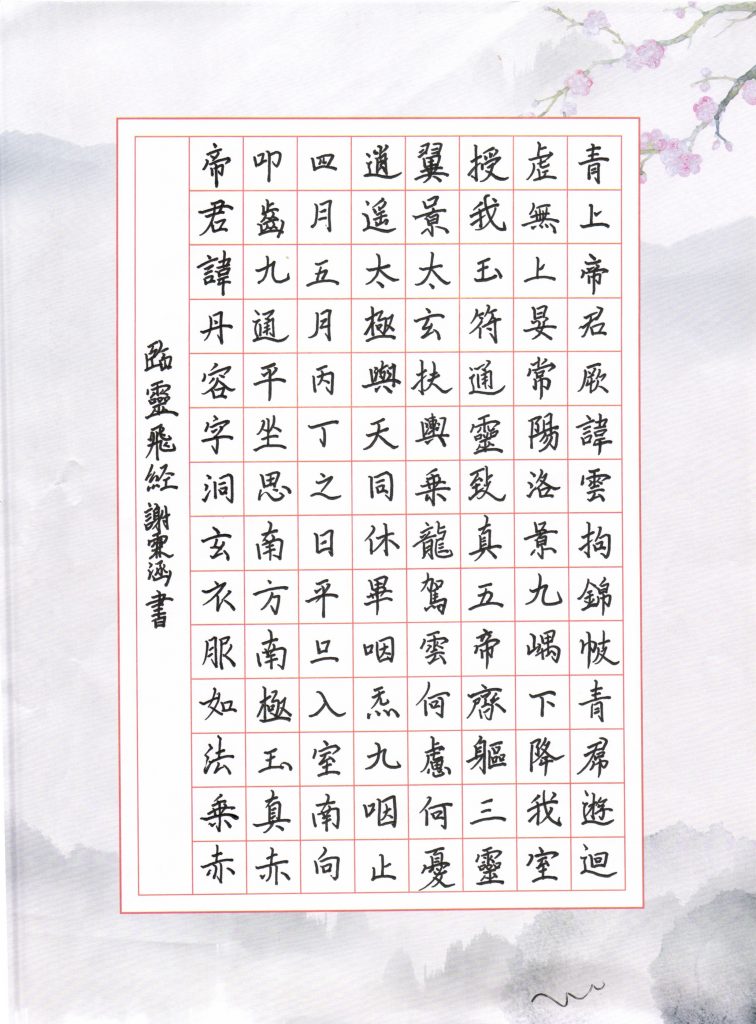 青上帝君厥諱雲拘錦帔青帬遊迴
虛無上晏常陽洛景九嵎下降我室
授我玉符通靈致真五帝齊軀三靈
翼景太玄扶輿乘龍駕雲何慮何憂
逍遥太極與天同休畢咽炁九咽止
四月五月丙丁之日平旦入室南向
叩齒九通平坐思南方南極玉真赤
帝君諱丹容字洞玄衣服如法乘赤
臨靈飛経謝霂涵書